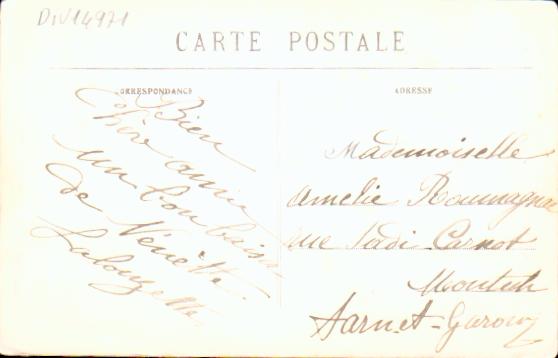 Div14971
CARTE POSTALE
CORRESPONDANCE
ADRESSE
Bien
Chère amie
un bon baiser
de Venette
Lalouzette
Mademoiselle
Amelie Roumagnac
rue Sadi Carnot
Montech
Tarn et-Garonne